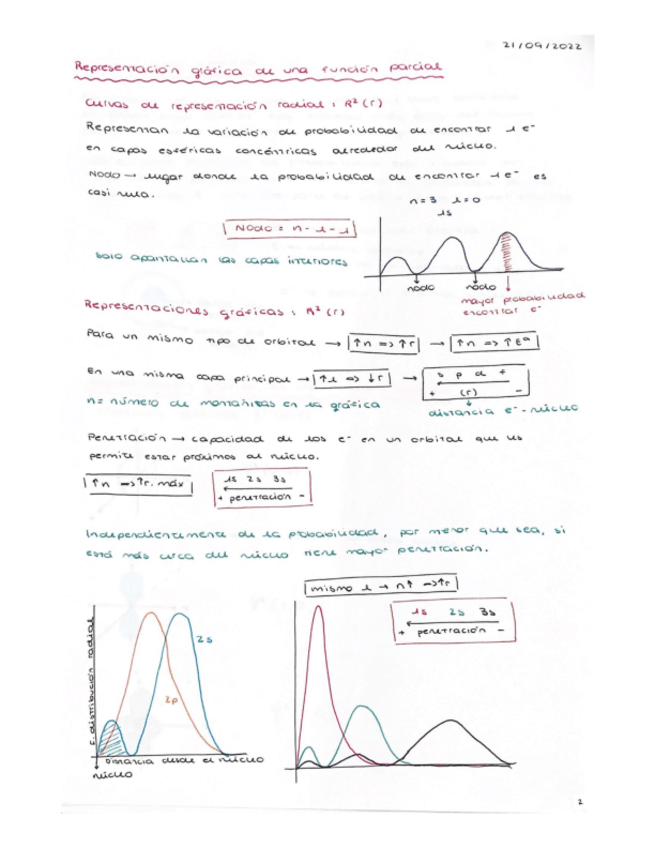 21/09/2022
Representación gráfica de una función parcial
Curvas de representación radial: R²(r)
Representan la variación de probabilidad de encontrar 1 e⁻
en capas esféricas concéntricas alrededor del núcleo.
Nodo → lugar donde la probabilidad de encontrar 1 e⁻ es
casi nula.
n=3 l=0
1s
Nodo = n - l - 1
solo apantallan las capas interiores
nodo nodo
mayor probabilidad
encontrar e⁻
Representaciones gráficas: R²(r)
Para un mismo tipo de orbital → ↑n => ↑r → ↑n => ↑Eª
En una misma capa principal → ↑l => ↓r → s p d f
+ (r) -
n= número de montañitas en la gráfica
distancia e⁻-núcleo
Penetración → capacidad de los e⁻ en un orbital que les
permite estar próximos al núcleo.
↑n → ↑r. máx
1s 2s 3s
+ penetración -
Independientemente de la probabilidad, por menor que sea, si
está más cerca del núcleo tiene mayor penetración.
mismo l → n↑ → ↑r
1s 2s 3s
+ penetración -
F. distribución radial
2s
2p
Distancia desde el núcleo
núcleo
2